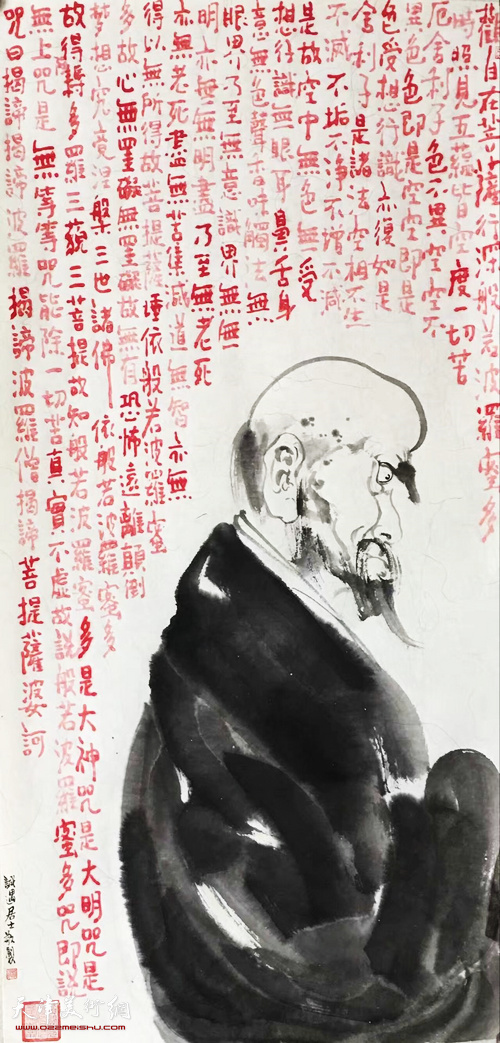 觀自在菩薩行深般若波羅蜜多
時照見五蘊皆空度一切苦
厄舍利子色不異空空不
異色色即是空空即是
色受想行識亦復如是
舍利子是諸法空相不生
不滅不垢不淨不增不減
是故空中無色無受
想行識無眼耳鼻舌身
意無色聲香味觸法無
眼界乃至無意識界無無
明亦無無明盡乃至無老死
亦無老死盡無苦集滅道無智亦無
得以無所得故菩提薩埵依般若波羅蜜
多故心無罣礙無罣礙故無有恐怖遠離顛倒
夢想究竟涅槃三世諸佛依般若波羅蜜多
故得耨多羅三藐三菩提故知般若波羅蜜多是大神咒是大明咒是
無上咒是無等等咒能除一切苦真實不虛故說般若波羅蜜多咒即說
咒曰揭諦揭諦波羅揭諦波羅僧揭諦菩提薩婆訶
居士
天津美术網
www.022meishu.com